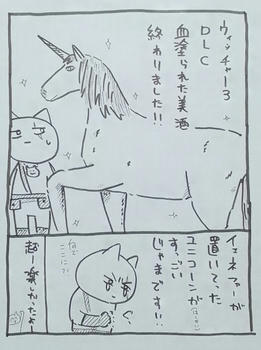 ウィッチャー3
DLC
血塗られた美酒
終わりました!!
イェネファーが
置いてった
ユニコーンが
すっごい
じゃまです…!!
なんで
ここに?
超ー楽しかったよー